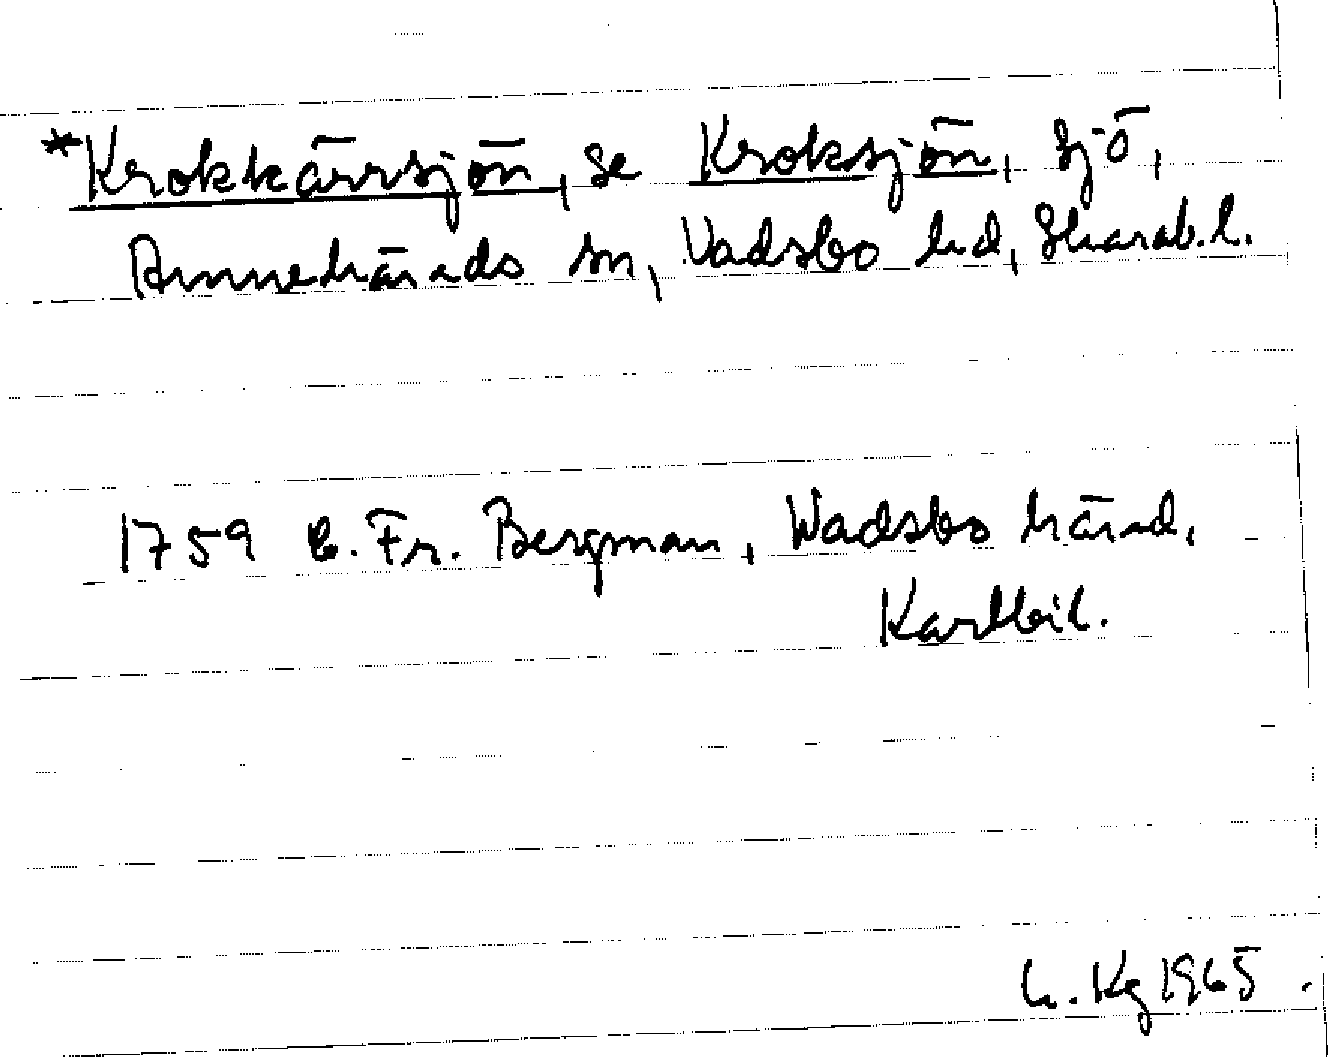 *Krokkärrsjön, se Kroksjön, sjö,
Amnehärads sn, Vadsbo hd, Skarab.l.
1759 C. Fr. Bergman, Wadsbo härad,
Kartbil.
Kg 1965.